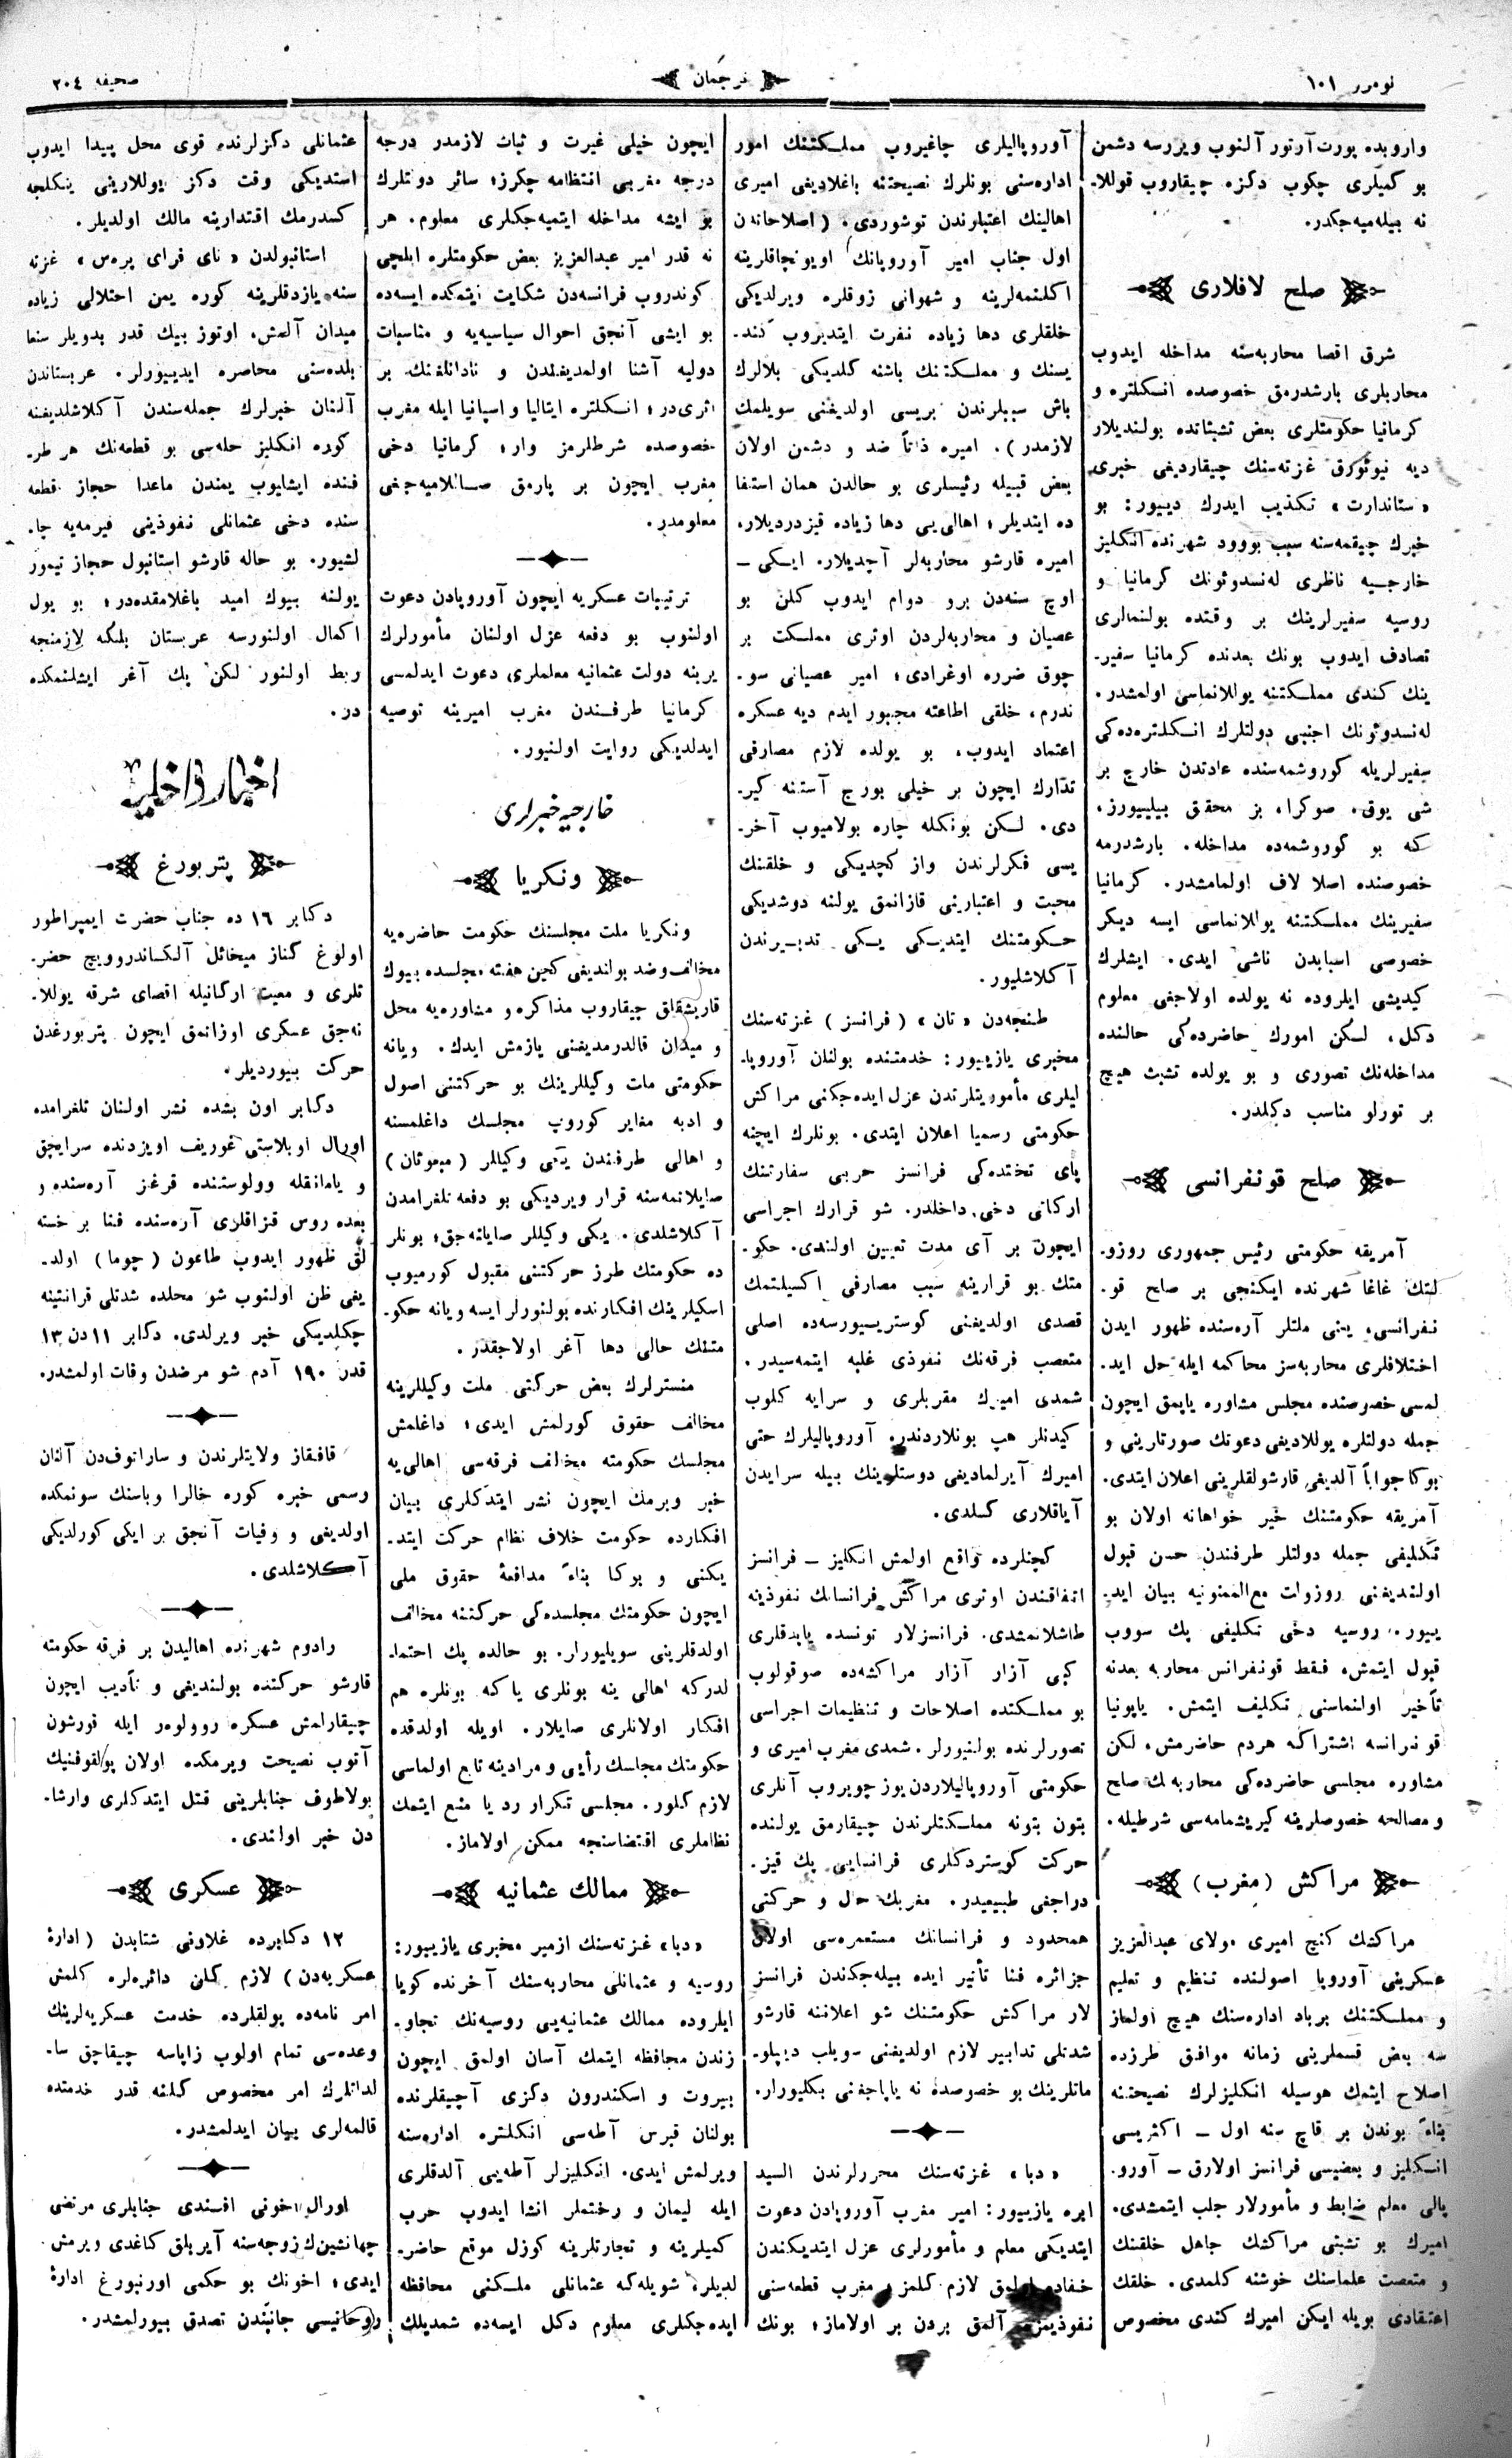 نومرر ١٠١
ترجمان
صحيفه ٢٠٤
واروبده پورت آرتور آلنوب ويزرسه دشمن
بو كميلرى چكوب دكزه چيقاروب قوللا۔
نه بيله‌ميه‌جكدر.
صلح لافلارى
شرق اقصا محاربه‌سنه مداخله ايدوب
محاربلرى بارشدرمق خصوصده انكلتره و
كرمانيا حكومتلرى بعض تشبثاتده بولنديلار
ديه نيوئورق غزته‌سنك چيقارديغى خبرى
«ستاندارت» تكذيب ايدرك ديیور: بو
خبرك چيقمه‌سنه سبب بووود شهرنده انكليز
خارجيه ناظرى له‌نسدوئونك كرمانيا و
روسيه سفيرلرينك بر وقتده بولنمالرى
تصادف ايدوب بونك بعدنده كرمانيا سفير۔
ينك كندى مملكتنه يوللانماسى اولمشدر.
له‌نسدوئونك اجنبى دولتلرك انكلتره‌ده‌كى
سفيرلريله كوروشمه‌سنده عادتدن خارج بر
شى يوق. صوكرا، بز محقق بيليیورز،
كه بو كوروشمه‌ده مداخله، بارشدرمه
خصوصنده اصلا لاف اولمامشدر. كرمانيا
سفيرينك مملكتنه يوللانماسى ايسه ديكر
خصوصى اسبابدن ناشى ايدى. ايشلرك
كيديشى ايلروده نه يولده اولاجغى معلوم
دكل، لكن امورك حاضرده‌كى حالنده
مداخله‌نك تصورى و بو يولده تشبث هيچ
بر تورلو مناسب دكلدر.
صلح قونفرانسى
آمريقه حكومتى رئيس جمهورى روزو۔
لتك غاغا شهرنده ايكنجى بر صلح قو۔
نفرانسى، يعنى ملتلر آره‌سنده ظهور ايدن
اختلافلرى محاربه‌سز محاكمه ايله حل ايد۔
لمسى خصوصنده مجلس مشاوره ياپمق ايچون
جمله دولتلره يوللاديغى دعوتك صورتارينى و
بوكا جواباً آلديغى قارشولقلرينى اعلان ايتدى.
آمريقه حكومتنك خير خواهانه اولان بو
تكليفى جمله دولتلر طرفندن حسن قبول
اولنديغنى روزوات مع‌الممنونيه بيان ايد۔
يیور. روسيه دخى تكليفى پك سووب
قبول ايتمش، فقط قونفرانس محاربه بعدنه
تأخير اولنماسنى تكليف ايتمش. ياپونيا
قونفرانسه اشتراكه هردم حاضرمش، لكن
مشاوره مجلسى حاضرده‌كى محاربه‌نك صلح
و مصالحه خصوصلرينه كيريشمامه‌سى شرطيله.
مراكش (مغرب)
مراكشك كنج اميرى مولاى عبدالعزيز
عسكرينى آوروپا اصولنده تنظيم و تعليم
و مملكتنك برباد اداره‌سنك هيچ اولماز
سه بعض قسملرينى زمانه موافق طرزده
اصلاح ايتمك هوسيله انكليزلرك نصيحتنه
بناءً بوندن بر قاچ سنه اول – اكثريسى
انكليز و بعضيسى فرانسز اولارق – آورو۔
پالى معلم ضابط و مأمورلار جلب ايتمشدى.
اميرك بو تشبثى مراكشك جاهل خلقنك
و متعصب علماسنك خوشنه كلمدى. خلقك
اعتقادى بويله ايكن اميرك كندى مخصوص
آوروپاليلرى چاغيروب مملكتنك امور
اداره‌سنى بونلرك نصيحتنه باغلاديغى اميرى
اهالينك اعتبارندن توشوردى. (اصلاحاتدن
اول جناب امير آوروپانك اويونچاقلرينه
اكلنمه‌لرينه و شهوانى زوقلره ويرلديكى
خلقلرى دها زياده نفرت ايتديروب كند۔
يسنك و مملكتنك باشنه كلديكى بلالرك
باش سببلرندن بريسى اولديغنى سويلمك
لازمدر). اميره ذاتاً ضد و دشمن اولان
بعض قبيله رئيسلرى بو حالدن همان استفا
ده ايتديلر؛ اهالى‌يى دها زياده قيزدرديلار،
اميره قارشو محاربه‌لر آچديلار. ايكى –
اوچ سنه‌دن برو دوام ايدوب كلن بو
عصيان و محاربه‌لردن اوترى مملكت بر
چوق ضرره اوغرادى؛ امير عصيانى سو۔
ندرم، خلقى اطاعته مجبور ايدم ديه عسكره
اعتماد ايدوب، بو يولده لازم مصارفى
تدارك ايچون بر خيلى بورج آستنه كير۔
دى. لكن بونكله چاره بولاميوب آخر۔
يسى فكرلرندن واز كچديكى و خلقنك
محبت و اعتبارينى قازانمق يولنه دوشديكى
حكومتنك ايتديكى يكى تدبيرندن
آكلاشليور.
طنجه‌دن «تان» (فرانسز) غزته‌سنك
مخبرى يازيیور: خدمتنده بولنان آوروپا۔
ليلرى مأموريتلرتدن عزل ايده‌جكنى مراكش
حكومتى رسميا اعلان ايتدى. بونلرك ايچنه
پاى تختده‌كى فرانسز حربى سفارتنك
اركانى دخى داخلدر. شو قرارك اجراسى
ايچون بر آى مدت تعيين اولندى. حكو۔
متك بو قرارينه سبب مصارفى اكسيلتمك
قصدى اولديغنى كوستريیورسه‌ده اصلى
متعصب فرقه‌نك نفوذى غلبه ايتمه‌سيدر.
شمدى اميرك مقربلرى و سرايه كلوب
كيدنلر هپ بونلاردندر. آوروپاليلرك حتى
اميرك آيرلماديغى دوستلرينك بيله سرايدن
آياقلارى كسلدى.
كچنلرده واقع اولمش انكليز – فرانسز
اتفاقندن اوترى مراكش فرانسانك نفوذينه
طاشلانمشدى. فرانسزلار تونسده ياپدقلرى
كبى آزار آزار مراكشه‌ده صوقولوب
بو مملكتده اصلاحات و تنظيمات اجراسى
تصورلرنده بولنيورلر. شمدى مغرب اميرى و
حكومتى آوروپاليلاردن يوز چويروب آنلرى
بتون بتونه مملكتلرندن چيقارمق يولنده
حركت كوستردكلرى فرانسايى پك قيز۔
دراجغى طبيعيدر. مغربك حال و حركتى
همحدود و فرانسانك مستعمره‌سى اولان
جزائره فنا تأثير ايده بيله‌جكندن فرانسز
لار مراكش حكومتنك شو اعلاننه قارشو
شدتلى تدابير لازم اولديغنى سويلب ديپلو۔
ماتلرينك بو خصوصده نه ياپاجغنى بكليورار.
«دبا» غزته‌سنك محررلرندن السيد
ايره يازيیور: امير مغرب آوروپادن دعوت
ايتديكى معلم و مأمورلرى عزل ايتديكندن
خفا لازم كلمز؛ مغرب قطعه‌سنى
آلمق بردن بر اولاماز؛ بونك
ايچون خيلى غيرت و ثبات لازمدر درجه
درجه مغربى انتظامه چكرز؛ سائر دولتلرك
بو ايشه مداخله ايتميه‌جكلرى معلوم. هر
نه قدر امير عبدالعزيز بعض حكومتلره ايلچى
كوندروب فرانسه‌دن شكايت ايتمكده ايسه‌ده
بو ايشى آنجق احوال سياسيه‌يه و مناسبات
دوليه آشنا اولمديغندن و نادانلغنك بر
اثرى‌در؛ انكلتره ايتاليا و اسپانيا ايله مغرب
خصوصده شرطلرمز وار؛ كرمانيا دخى
مغرب ايچون بر پارمق صاللاميه‌جغى
معلومدر.
ترتيبات عسكريه ايچون آوروپادن دعوت
اولنوب بو دفعه عزل اولنان مأمورلرك
يرينه دولت عثمانيه معلملرى دعوت ايدلمسى
كرمانيا طرفندن مغرب اميرينه توصيه
ايدلديكى روايت اولنيور.
خارجيه خبرلرى
ونكريا
ونكريا ملت مجلسنك حكومت حاضره‌يه
مخالف و ضد بولنديغى كچن هفته مجلسده بيوك
قاريشقلق چيقاروب مذاكره و مشاوره‌يه محل
و ميدان قالدرمديغنى يازمش ايدك. ويانه
حكومتى مات وكيللرينك بو حركتنى اصول
و ادبه مغاير كوروب مجلسك داغلمسنه
و اهالى طرفندن يكى وكيللر (مبعوثان)
صايلانمه‌سنه قرار ويرديكى بو دفعه تلغرامدن
آكلاشلدى. يكى وكيللر صايلنه‌جق؛ بونلر
ده حكومتك طرز حركتنى مقبول كورميوب
اسكيلرينك افكارنده بولنورلر ايسه ويانه حكو۔
متنك حالى دها آغر اولاجقدر.
منسترلرك بعض حركتى ملت وكيللرينه
مخالف حقوق كورلمش ايدى؛ داغلمش
مجلسك حكومته مخالف فرقه‌سى اهالى‌يه
خبر ويرمك ايچون نشر ايتدكلرى بيان
افكارده حكومت خلاف نظام حركت ايتد۔
يكنى و بوكا بناءً مدافعهٔ حقوق ملى
ايچون حكومتك مجلسده‌كى حركتنه مخالف
اولدقلرينى سويليورار. بو حالده پك احتما۔
لدركه اهالى ينه بونلرى ياكه بونلره هم
افكار اولانلرى صايلار. اويله اولدقده
حكومتك مجلسك رأيى و مرادينه تابع اولماسى
لازم كلور. مجلسى تكرار رد يا منع ايتمك
نظاملرى اقتضاسنجه ممكن اولاماز.
ممالك عثمانيه
«دبا» غزته‌سنك ازمير مخبرى يازيیور:
روسيه و عثمانلى محاربه‌سنك آخرنده كويا
ايلروده ممالك عثمانيه‌يى روسيه‌نك تجاو۔
زندن محافظه ايتمك آسان اولمق ايچون
بيروت و اسكندرون دكزى آچيقلرنده
بولنان قبرس آطه‌سى انكلتره اداره‌سنه
ويرلمش ايدى. انكليزلر آطه‌يى آلدقلرى
ايله ليمان و رختملر انشا ايدوب حرب
كميلرينه و تجارتلرينه كوزل موقع حاضر۔
لديلر، شويله‌كه عثمانلى ملكنى محافظه
ايده‌جكلرى معلوم دكل ايسه‌ده شمديلك
عثمانلى دكزلرنده قوى محل پيدا ايدوب
استديكى وقت دكز يوللارينى ينكلجه
كسدرمك اقتدارينه مالك اولديلر.
استانبولدن «ناى فراى پره‌س» غزته
سنه يازدقلرينه كوره يمن احتلالى زياده
ميدان آلمش، اوتوز بيك قدر بدويلر سنعا
بلده‌سنى محاصره ايديیورلر. عربستاندن
آلنان خبرلرك جمله‌سندن آكلاشلديغنه
كوره انكليز حله‌سى بو قطعه‌نك هر طر۔
فنده ايشليوب يمندن ماعدا حجاز قطعه
سنده دخى عثمانلى نفوذينى قيرمه‌يه چا۔
لشيور. بو حاله قارشو استانبول حجاز تيمور
يولنه بيوك اميد باغلامقده‌در؛ بو يول
اكمال اولنورسه عربستان بلكه لازمنجه
وبط اولنور لكن پك آغر ايشلنمكده
در.
اخبار داخليه
پتربورغ
دكابر ١٦ ده جناب حضرت ايمپراطور
اولوغ كناز ميخائل آلكساندروويچ حضر۔
تلرى و معيت اركانيله اقصاى شرقه يوللا۔
نه‌جق عسكرى اوزانمق ايچون پتربورغدن
حركت بيورديلر.
دكابر اون بشده نشر اولنان تلغرامده
اورال اوبلاستى غوريف اويزدنده سرايچق
و يامانقله وولوستنده قرغز آره‌سنده و
بعده روس قزاقلرى آره‌سنده فنا بر خسته
لق ظهور ايدوب طاعون (چوما) اولد۔
يغى ظن اولنوب شو محلده شدتلى قرانتينه
چكلديكى خبر ويرلدى. دكابر ١١دن ١٣
قدر ١٩٠ آدم شو مرضدن وفات اولمشدر.
قافقاز ولايتلرندن و ساراتوف‌دن آلنان
رسمى خبره كوره خالرا وباسنك سونمكده
اولديغى و وفيات آنجق بر ايكى كورلديكى
آكلاشلدى.
رادوم شهرنده اهاليدن بر فرقه حكومته
قارشو حركتده بولنديغى و تأديب ايچون
چيقارلمش عسكره روولوەر ايله قورشون
آتوب نصيحت ويرمكده اولان پولقوفنيك
بولاطوف جنابلرينى قتل ايتدكلرى وارشا۔
دن خبر اولندى.
عسكرى
١٢ دكابرده غلاونى شتابدن (ادارهٔ
عسكريه‌دن) لازم كلن دائره‌لره كلمش
امر نامه‌ده پولقلرده خدمت عسكريه‌لرينك
وعده‌سى تمام اولوب زاپاسه چيقاجق سا۔
لداتلرك امر مخصوص كلنه قدر خدمتده
قالمه‌لرى بيان ايدلمشدر.
اورال اخونى افندى جنابلرى مرتضى
جهانشين‌ك زوجه‌سنه آيريلق كاغدى ويرمش
ايدى؛ اخونك بو حكمى اورنبورغ ادارهٔ
روحانيسى جانبندن تصدق بيورلمشدر.